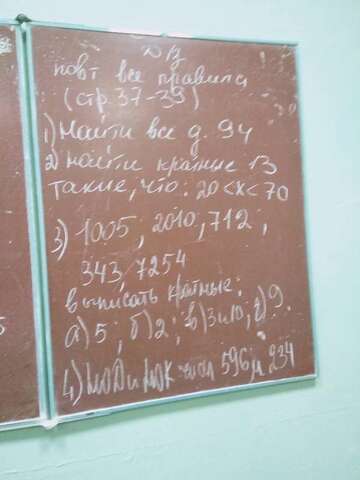 Д/з
повт все правила
(стр. 37-39)
1) Найти все д. 94
2) найти кратные 13
такие, что: 20<x<70
3) 1005, 2010, 712,
343, 7254
выписать кратные:
а) 5; б) 2; в) 3 и 10; г) 9.
4) НОД и НОК чисел 596 и 234